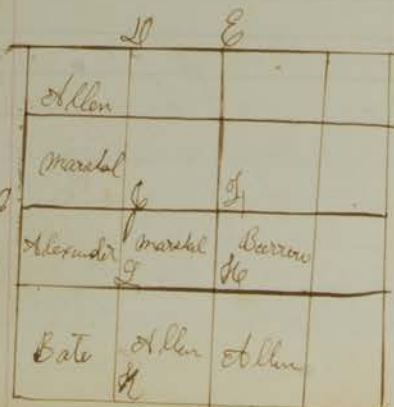 D E
Allen
Marshal
Alexander Marshal Burrow
Bate Allen Allen